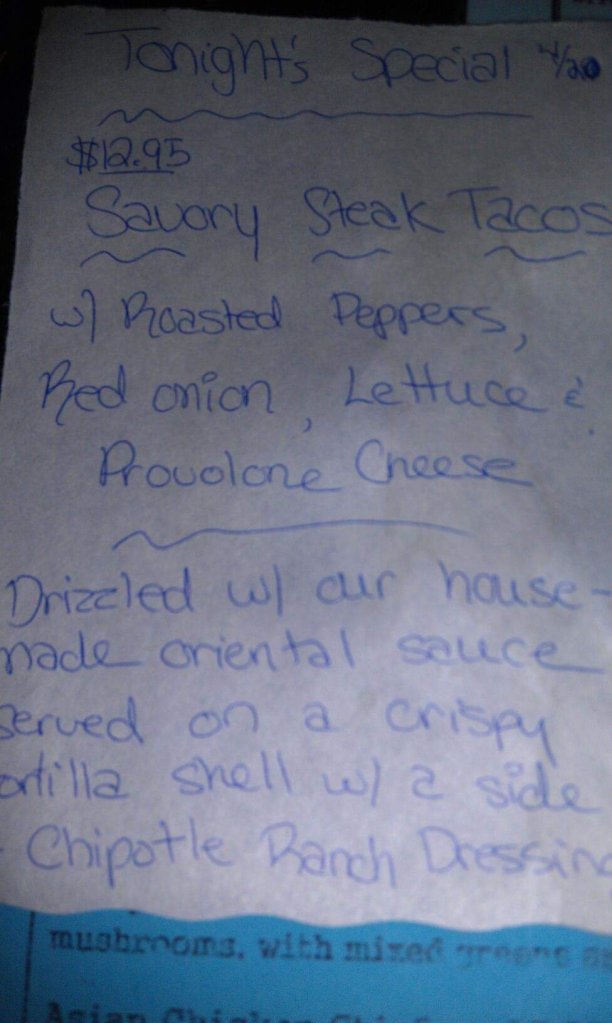 Tonight's Special 4/20
$12.95
Savory Steak Tacos
w/ Roasted Peppers,
Red onion, Lettuce &
Provolone Cheese
Drizzled w/ our house-
made oriental sauce
served on a crispy
ortilla shell w/ a side
- Chipotle Ranch Dressing
mushrooms, with mixed greens
Asian Chicken